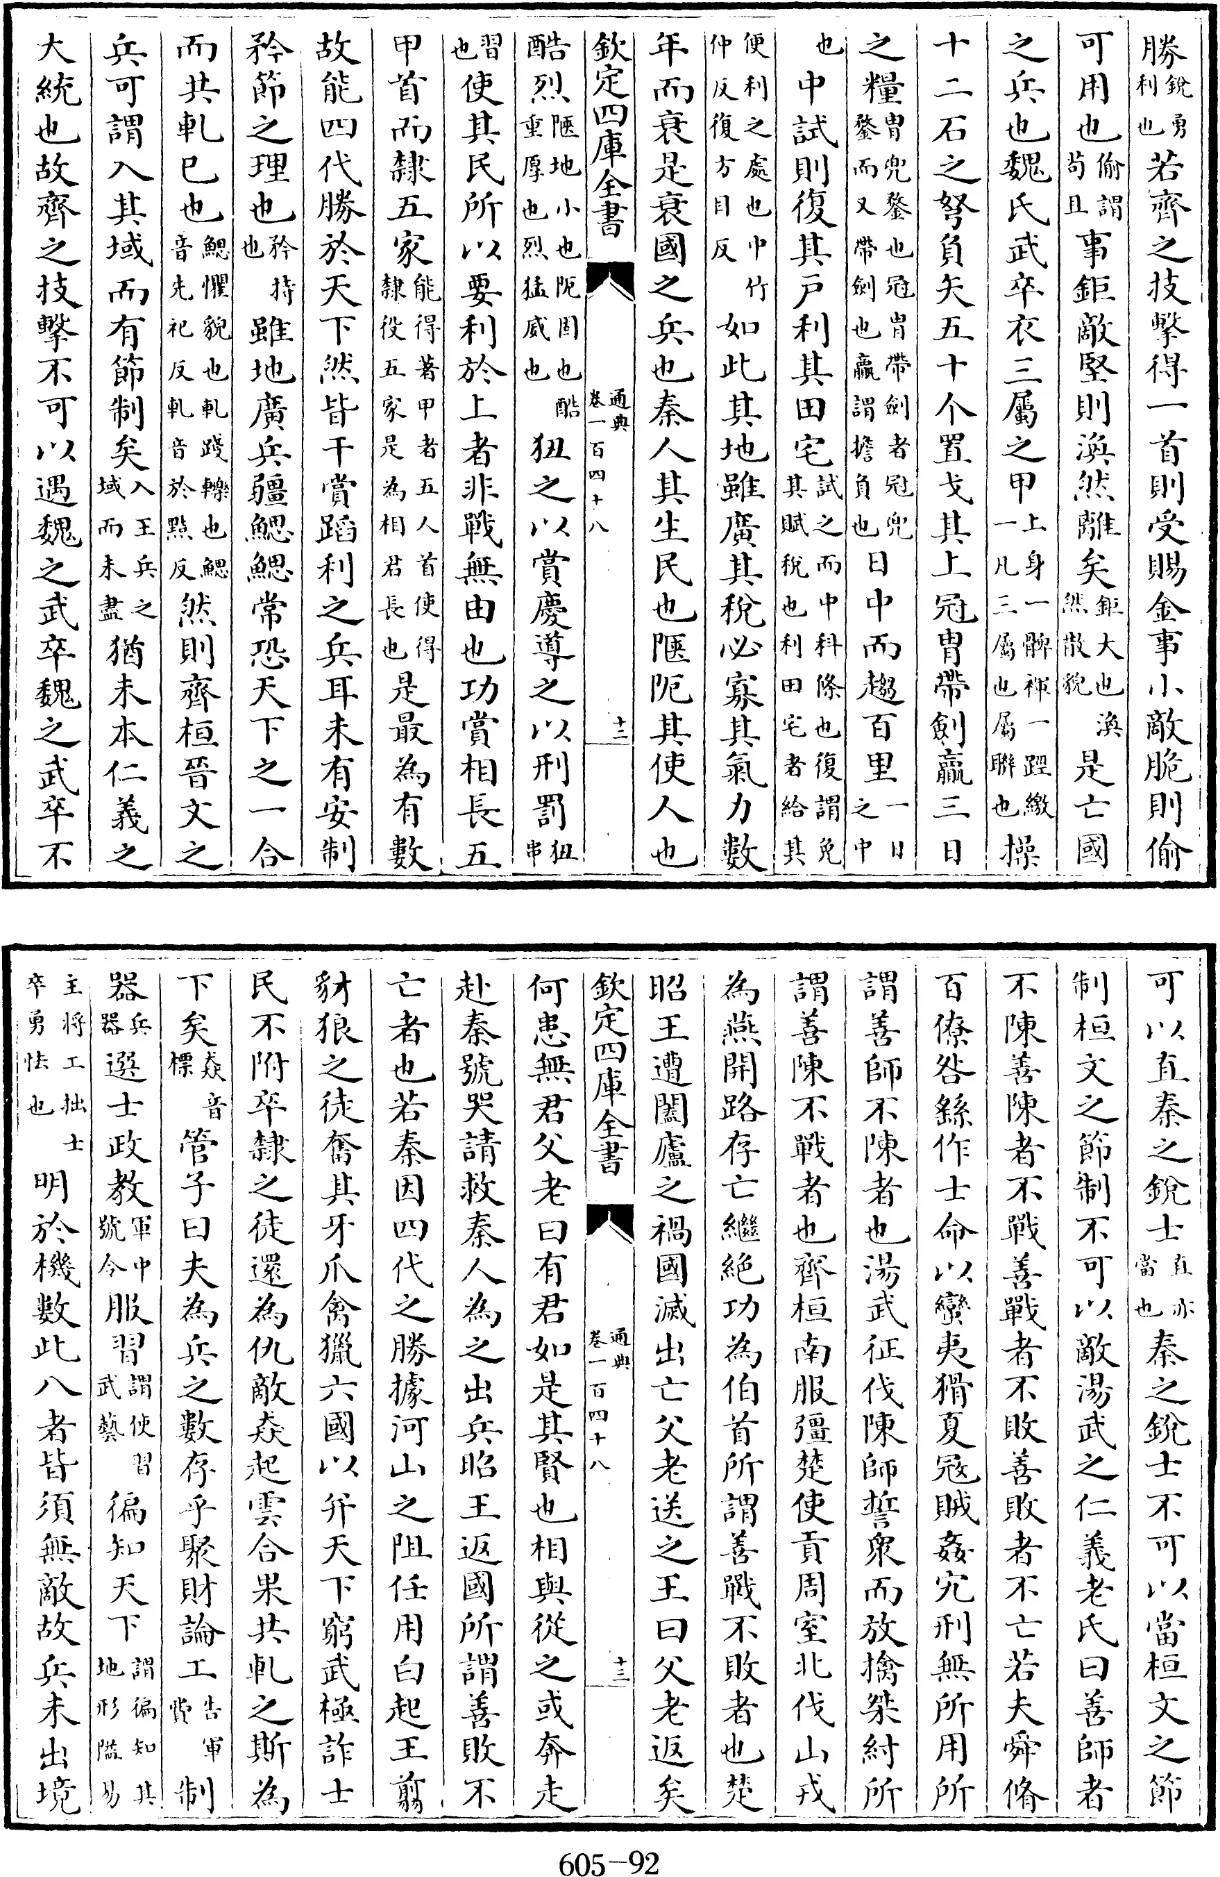 勝銳勇利也若齊之技擊得一首則受賜金事小敵脆則偷
可用也偷謂苟且事鉅敵堅則渙然離矣鉅大也渙然散貌是亡國
之兵也魏氏武卒衣三屬之甲上身一髀褌一踁繳一凡三屬也屬聯也操
十二石之弩負矢五十个置戈其上冠胄帶劍贏三日
之糧胄兜鍪也冠胄帶劍者冠兜鍪而又帶劍也贏謂擔負也日中而趨百里一日之中
也中試則復其戶利其田宅試之而中科條也復謂免其賦稅也利田宅者給其
便利之處也中竹仲反復方目反如此其地雖廣其稅必寡其氣力數
年而衰是衰國之兵也秦人其生民也陿阨其使人也
欽定四庫全書
通典卷一百四十八
十二
酷烈陿地小也阨固也酷重厚也烈猛威也狃之以賞慶導之以刑罰狃串
習也使其民所以要利於上者非戰無由也功賞相長五
甲首而隸五家能得著甲者五人首使得隸役五家是為相君長也是最為有數
故能四代勝於天下然皆干賞蹈利之兵耳未有安制
矜節之理也矜持也雖地廣兵疆鰓鰓常恐天下之一合
而共軋已也鰓懼貌也軋踐轢也鰓音先祀反軋音於黠反然則齊桓晉文之
兵可謂入其域而有節制矣入王兵之域而未盡猶未本仁義之
大統也故齊之技擊不可以遇魏之武卒魏之武卒不
可以直秦之銳士直亦當也秦之銳士不可以當桓文之節
制桓文之節制不可以敵湯武之仁義老氏曰善師者
不陳善陳者不戰善戰者不敗善敗者不亡若夫舜脩
百僚咎繇作士命以蠻夷猾夏冦賊姦宄刑無所用所
謂善師不陳者也湯武征伐陳師誓衆而放擒桀紂所
謂善陳不戰者也齊桓南服彊楚使貢周室北伐山戎
為燕開路存亡繼絕功為伯首所謂善戰不敗者也楚
昭王遭闔廬之禍國滅出亡父老送之王曰父老返矣
欽定四庫全書
通典卷一百四十八
十三
何患無君父老曰有君如是其賢也相與從之或奔走
赴秦號哭請救秦人為之出兵昭王返國所謂善敗不
亡者也若秦因四代之勝據河山之阻任用白起王翦
豺狼之徒奮其牙爪禽獵六國以并天下窮武極詐士
民不附卒隸之徒還為仇敵猋起雲合果共軋之斯為
下矣猋音標管子曰夫為兵之數存乎聚財論工告軍費制
器兵器選士政教軍中號令服習謂使習武藝徧知天下謂徧知其地形隘易
主將工拙士卒勇怯也明於機數此八者皆須無敵故兵未出境
605-92